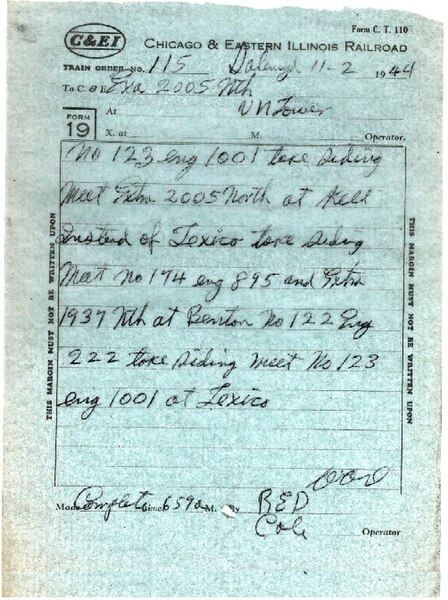 Form C. T. 110
C&EI
CHICAGO & EASTERN ILLINOIS RAILROAD
TRAIN ORDER NO. 115 11-2 1944
To C. & E. Exa 2005 Nth
At VN Tower
FORM 19
X. at M. Operator.
No 123 eng 1001 take siding
Meet Extra 2005 North at Kell
Instead of Texico take siding
Meet No 174 eng 895 and Extra
1937 Nth at Benton No 122 Eng
222 take siding meet No 123
eng 1001 at Texico
THIS MARGIN MUST NOT BE WRITTEN UPON
THIS MARGIN MUST NOT BE WRITTEN UPON
Made Complete time 659a M. By RED
Cole Operator